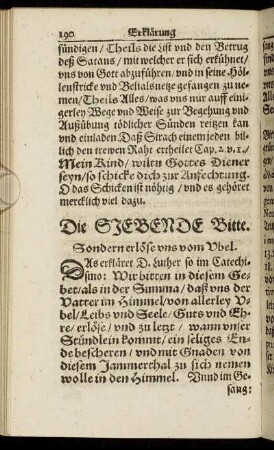 190 Erklärung
sündigen / Theils die List vnd den Betrug
deß Satans / mit welcher er sich erkühnet /
vns von Gott abzuführen / vnd in seine Höl-
lenstricke vnd Belialsnetze gefangen zu ne-
men / Theils Alles / was vns nur auff eini-
gerley Wege vnd Weise zur Begehung vnd
Außübung tödlicher Sünden reitzen kan
vnd einladen. Daß Sirach einem jeden bil-
lich den trewen Raht ertheilet Cap. 2. v. 1. /
Mein Kind / wiltu Gottes Diener
seyn / so schicke dich zur Anfechtung.
O das Schicken ist nöhtig / vnd es gehöret
mercklich viel dazu.
Die SIEBENDE Bitte.
Sondern erlöse vns vom Vbel.
DAs erkläret D. Luther so im Catechi-
smo: Wir bitten in diesem Ge-
bet / als in der Summa / daß vns der
Vatter im Himmel / von allerley V-
bel / Leibs vnd Seele / Guts vnd Eh-
re / erlöse / vnd zu letzt / wann vnser
Stündlein kommt / ein seliges En-
de bescheren / vnd mit Gnaden von
diesem Jammerthal zu sich nemen
wolle in den Himmel. Vnnd im Ge-
sang: